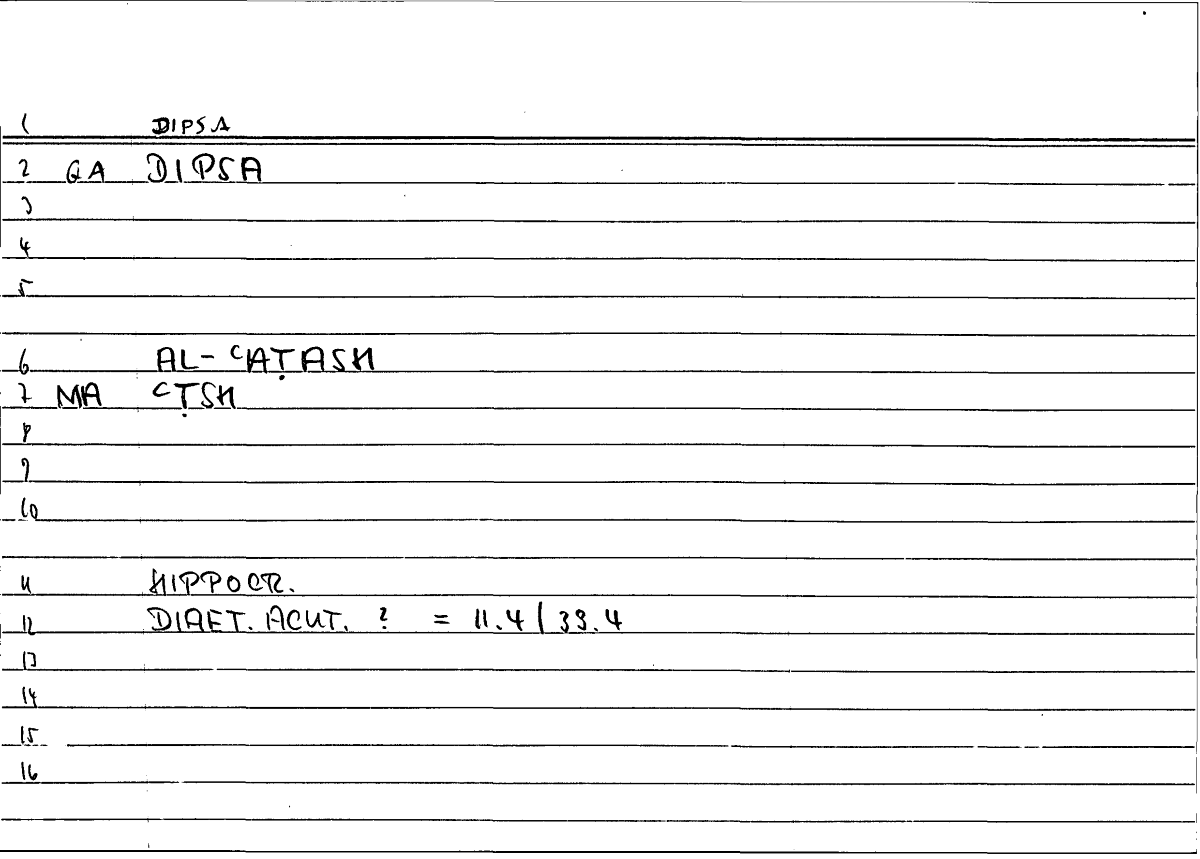 1 DIPSA
2 GA DIPSA
3
4
5
6 AL-ʿAṬASH
7 MA ʿṬSH
8
9
10
11 HIPPOCR.
12 DIAET. ACUT. ? = 11.4 | 39.4
13
14
15
16